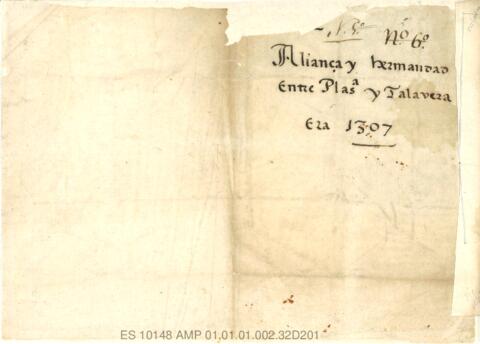 Nº 6º
Aliança y hermandad
Entre Plasª y Talavera
Era 1307
ES 10148 AMP 01.01.01.002.32D201